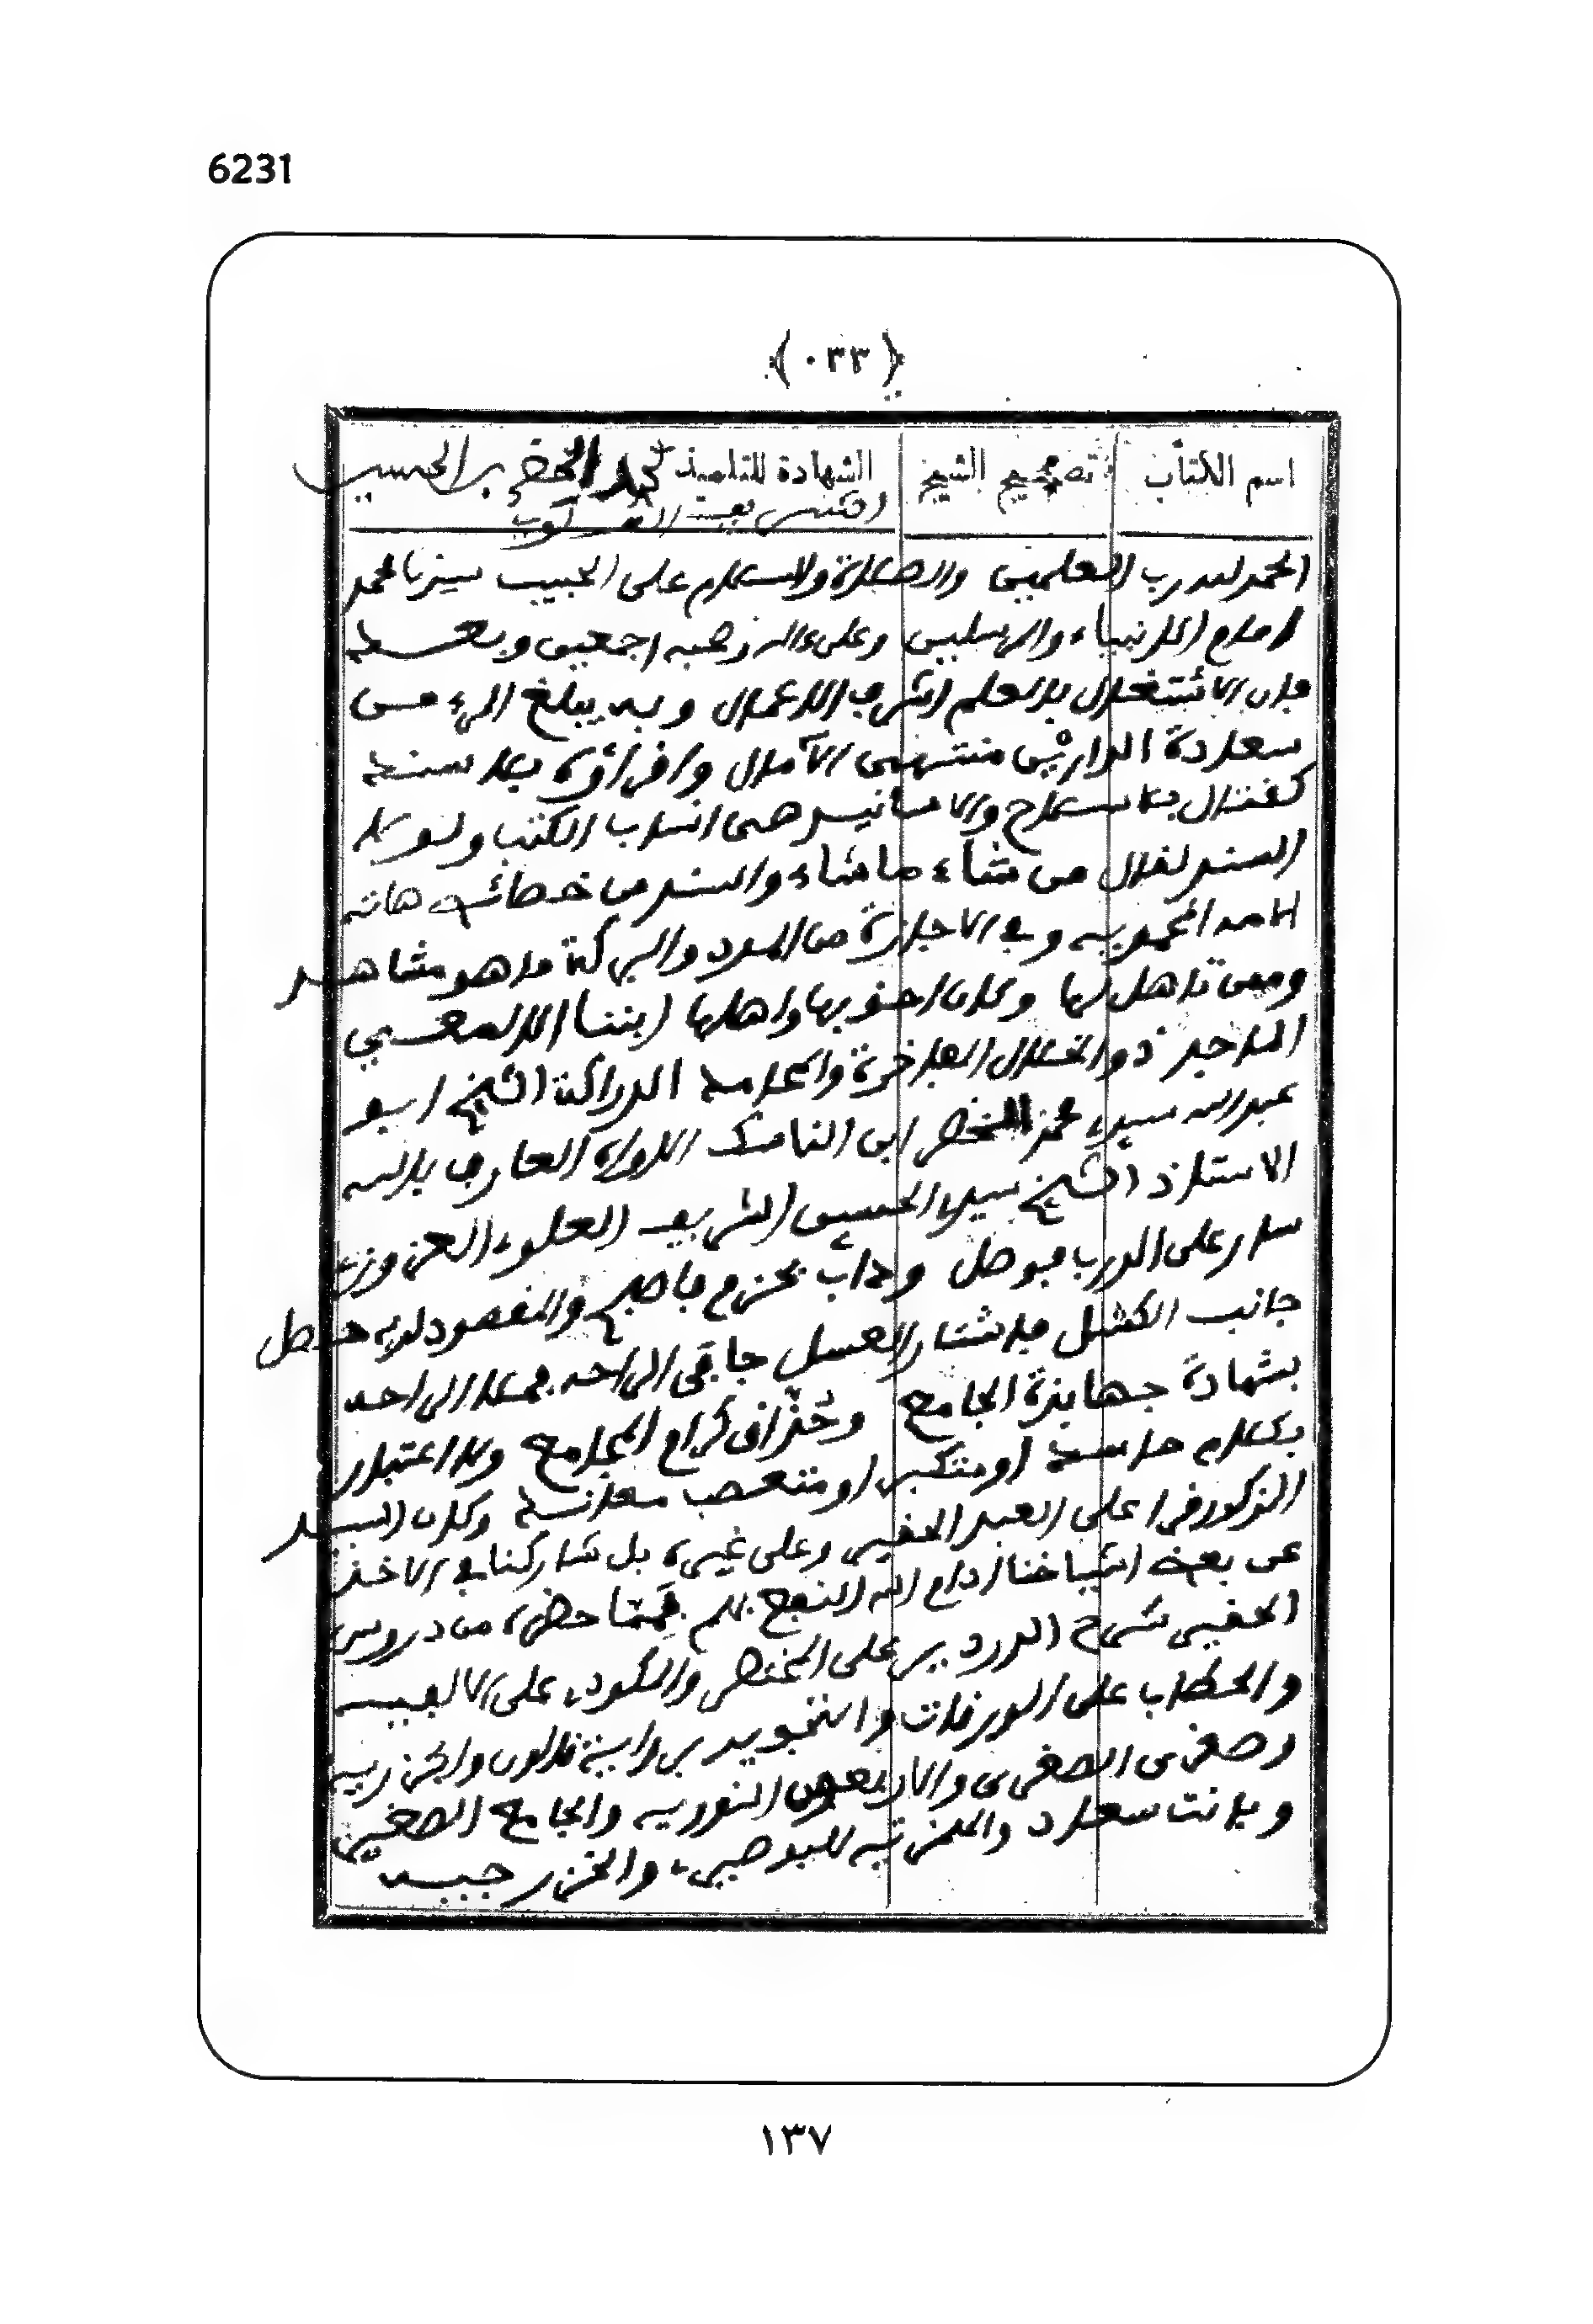 6231
﴿ ٠٣٣ ﴾
اسم الكتاب تصحيح الشيخ الشهادة للتلميذ محمد الخضر بن الحسين
الحمد لله رب العلمين والصلاة والسلام على الحبيب سيدنا محمد
امام الانبياء والمرسلين وعلى ءاله وصحبه اجمعين وبعد
فان الاشتغال بالعلم اشرف الاعمال وبه يبلغ المرء من
سعادة الدارين منتهى الآمال واقراؤه بلا سند
كقتال بلا سلاح والاسانيد هى انساب الكتب ولولا
السند لقال من شآء ما شاء والسند من خصائص هاته
الامه المحمديه وفي الاجازة من المدد والبركة ما هو مشاهد
وممن تاهل لها وكان احق بها واهلها ابننا الالمعي
الماجد ذو الخلال الفاخرة والعلامه الدراكة الشيخ ابو
عبد الله سيدي محمد الخضر ابن الناسك الاواه العارف بالله
الاستاذ الشيخ سيدي الحسين الشريف العلوي العزوزي
سار على الدرب فوصل وداب بحزم فاصبح والمقصود لديه حصل
جانب الكسل فاشتار العسل
بشهادة جهابذة الجامع وحذاق كرام المجامع ولا اعتبار
بكلام حاسد او متكبر او متعصب معاند وكان السيد
المذكور قرا على العبد الحقير وعلى غيره بل شاركنا في الاخذ
عن بعض اشياخنا ادام الله النفع بهم فمما حضره من دروس
الحقير شرح الدردير على المختصر والمكودي على الالفيه
والحطاب على الورقات والتجويد برواية قالون والجزريه
وصغرى الصغرى والاربعين النوويه والجامع الصغير
وبانت سعاد والهمزيه للبوصيري والخزرجيه
١٣٧